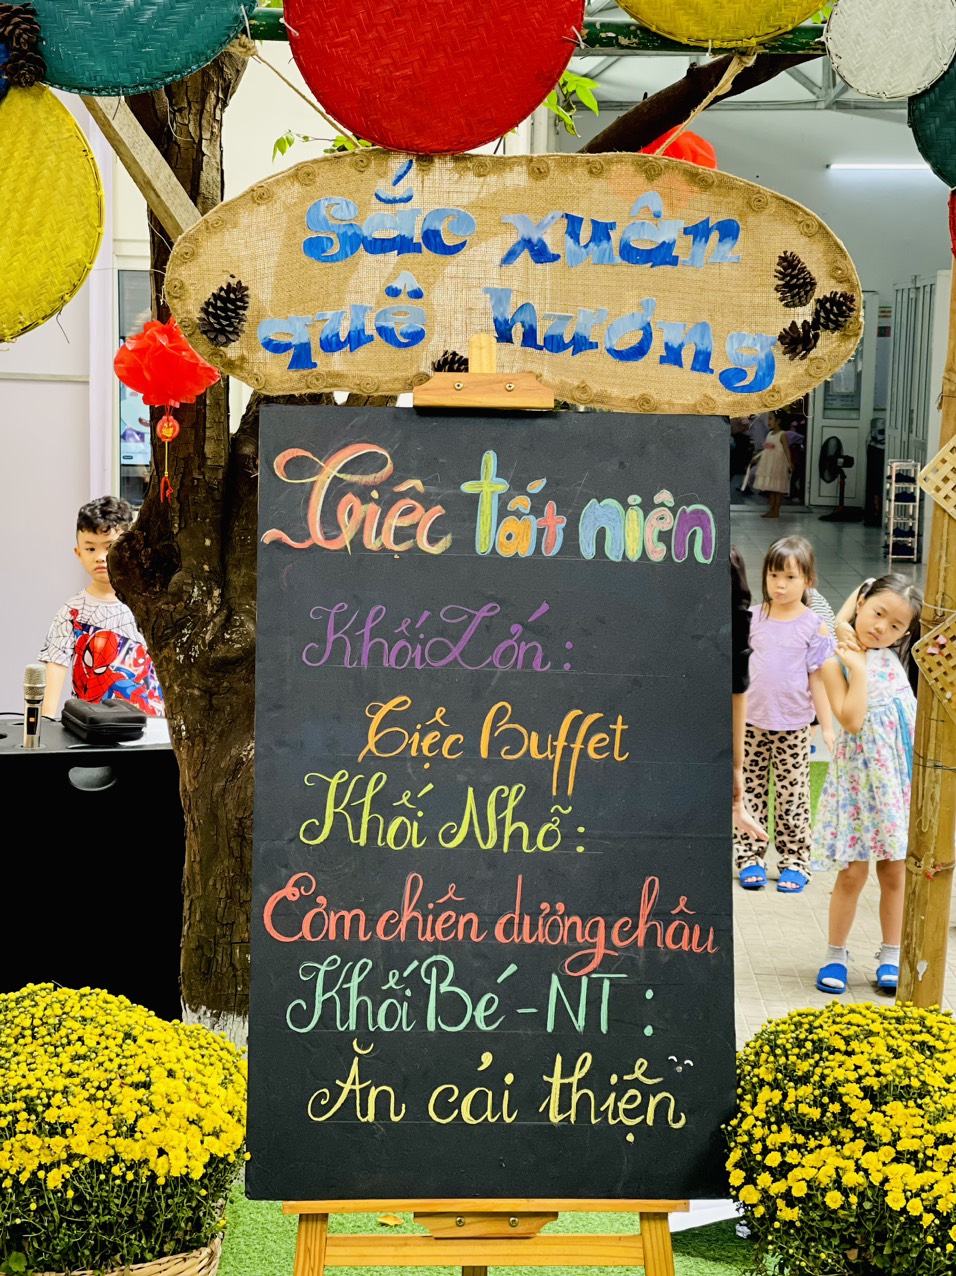 sắc xuân
quê hương
Tiệc tất niên
Khối Lớn:
Tiệc Buffet
Khối Nhỡ:
Cơm chiên dương châu
Khối Bé - NT:
Ăn cải thiện